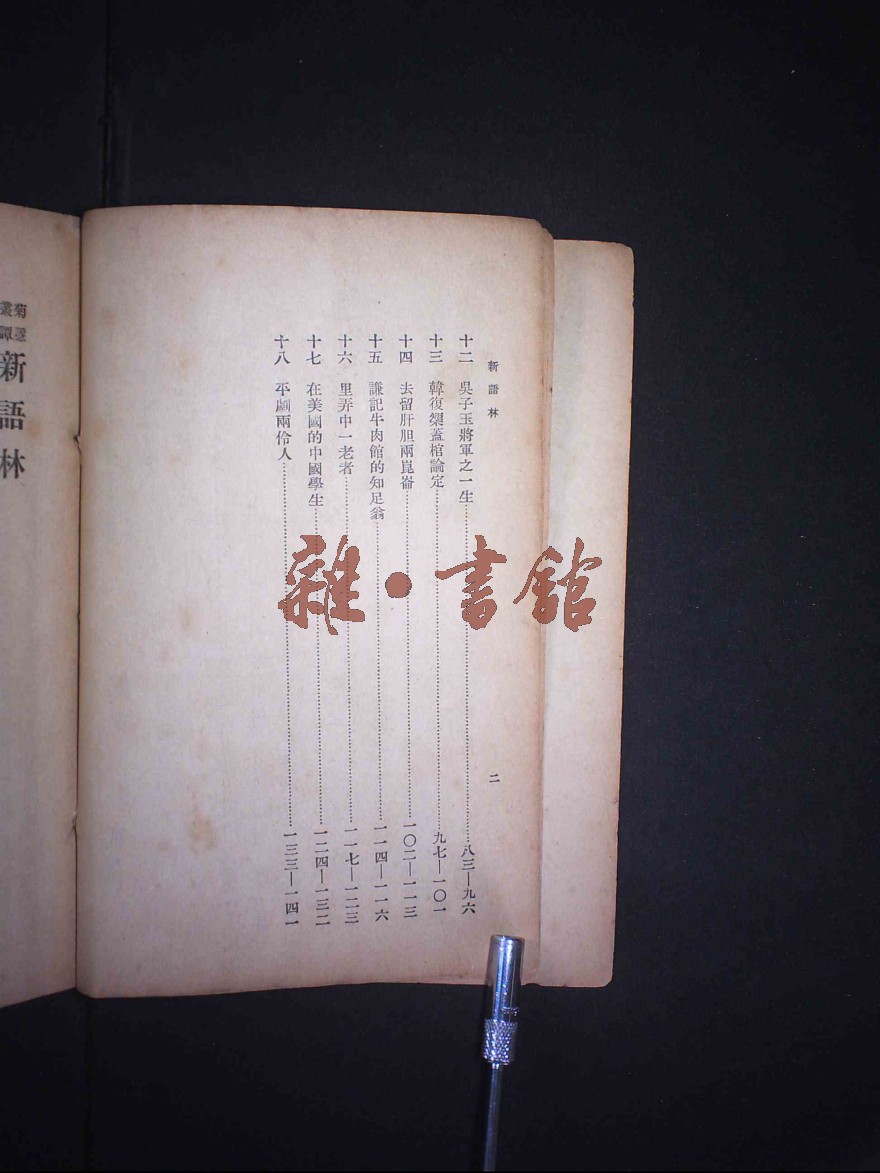 新語林
二
十二 吳子玉將軍之一生 八三—九六
十三 韓復榘蓋棺論定 九七—一〇一
十四 去留肝胆兩崑崙 一〇二—一一三
十五 謙記牛肉館的知足翁 一一四—一一六
十六 里弄中一老者 一一七—一二三
十七 在美國的中國學生 一二四—一三二
十八 平劇兩伶人 一三三—一四一
雜·書館
新語林